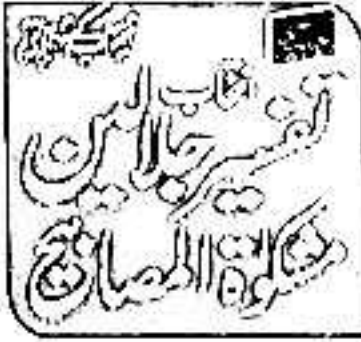 کتاب
تفسیر جلالین
مشکوٰۃ المصابیح